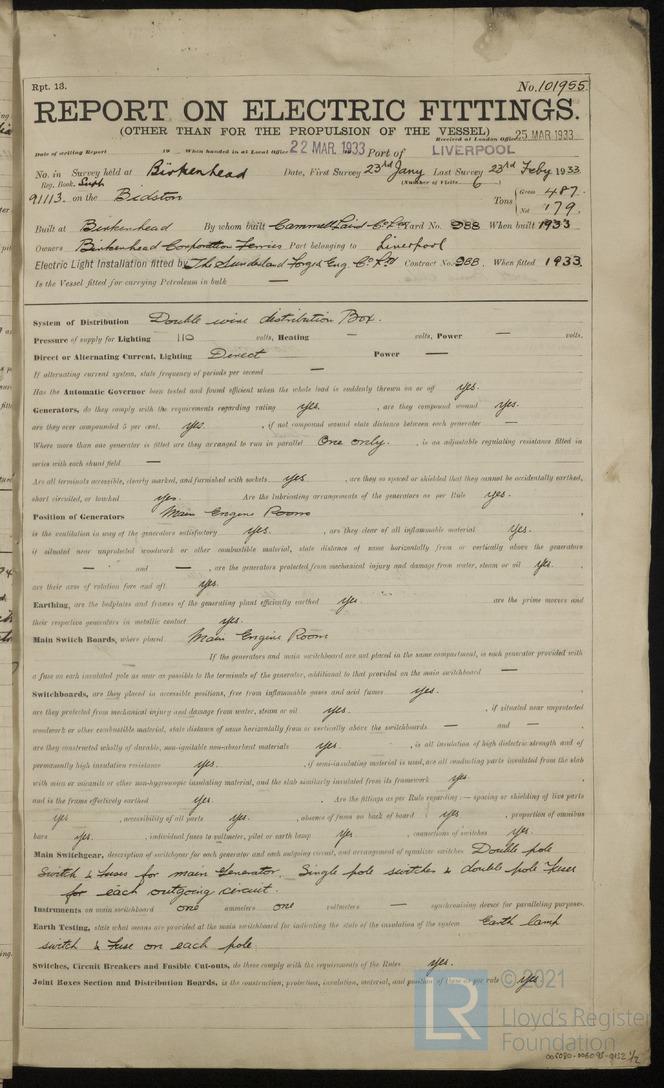 Rpt. 13.
No. 101955.
REPORT ON ELECTRIC FITTINGS.
(OTHER THAN FOR THE PROPULSION OF THE VESSEL)
Received at London Office 25 MAR 1933
Date of writing Report 19 When handed in at Local Office 22 MAR. 1933 Port of LIVERPOOL
No. in Survey held at Birkenhead Date, First Survey 23rd Jany Last Survey 23rd Feby 1933
Reg. Book. Supp (Number of Visits 6)
91113. on the Bidston Tons { Gross 487.
Net 179.
Built at Birkenhead By whom built Cammell Laird & Co Ld Yard No. 988 When built 1933
Owners Birkenhead Corporation Ferries Port belonging to Liverpool
Electric Light Installation fitted by The Sunderland Forge & Eng. Co Ld Contract No. 988. When fitted 1933.
Is the Vessel fitted for carrying Petroleum in bulk —
System of Distribution Double wire distribution Box.
Pressure of supply for Lighting 110 volts, Heating — volts, Power — volts.
Direct or Alternating Current, Lighting Direct Power —
If alternating current system, state frequency of periods per second —
Has the Automatic Governor been tested and found efficient when the whole load is suddenly thrown on or off yes.
Generators, do they comply with the requirements regarding rating yes. , are they compound wound yes.
are they over compounded 5 per cent. yes. , if not compound wound state distance between each generator —
Where more than one generator is fitted are they arranged to run in parallel One only. , is an adjustable regulating resistance fitted in
series with each shunt field —
Are all terminals accessible, clearly marked, and furnished with sockets yes , are they so spaced or shielded that they cannot be accidentally earthed,
short circuited, or touched yes. Are the lubricating arrangements of the generators as per Rule yes.
Position of Generators Main Engine Room
is the ventilation in way of the generators satisfactory yes. , are they clear of all inflammable material yes.
if situated near unprotected woodwork or other combustible material, state distance of same horizontally from or vertically above the generators
— and — , are the generators protected from mechanical injury and damage from water, steam or oil yes.
are their axes of rotation fore and aft yes.
Earthing, are the bedplates and frames of the generating plant efficiently earthed yes are the prime movers and
their respective generators in metallic contact yes.
Main Switch Boards, where placed Main Engine Room
If the generators and main switchboard are not placed in the same compartment, is each generator provided with
a fuse on each insulated pole as near as possible to the terminals of the generator, additional to that provided on the main switchboard —
Switchboards, are they placed in accessible positions, free from inflammable gases and acid fumes yes.
are they protected from mechanical injury and damage from water, steam or oil yes. , if situated near unprotected
woodwork or other combustible material, state distance of same horizontally from or vertically above the switchboards — and —
are they constructed wholly of durable, non-ignitable non-absorbent materials yes. , is all insulation of high dielectric strength and of
permanently high insulation resistance yes. , if semi-insulating material is used, are all conducting parts insulated from the slab
with mica or micanite or other non-hygroscopic insulating material, and the slab similarly insulated from its framework yes.
and is the frame effectively earthed yes. Are the fittings as per Rule regarding :— spacing or shielding of live parts
yes , accessibility of all parts yes. , absence of fuses on back of board yes , proportion of omnibus
bars yes. , individual fuses to voltmeter, pilot or earth lamp yes , connections of switches yes.
Main Switchgear, description of switchgear for each generator and each outgoing circuit, and arrangement of equaliser switches Double pole
switch & fuses for main Generator. Single pole switches & double pole fuses
for each outgoing circuit.
Instruments on main switchboard one ammeters one voltmeters — synchronising device for paralleling purposes.
Earth Testing, state what means are provided at the main switchboard for indicating the state of the insulation of the system Earth lamp
switch & fuse on each pole.
Switches, Circuit Breakers and Fusible Cut-outs, do these comply with the requirements of the Rules yes.
Joint Boxes Section and Distribution Boards, is the construction, protection, insulation, material, and position of these as per rule yes
© 2021
LR
Lloyd's Register
Foundation
005080-005095-0152 1/2